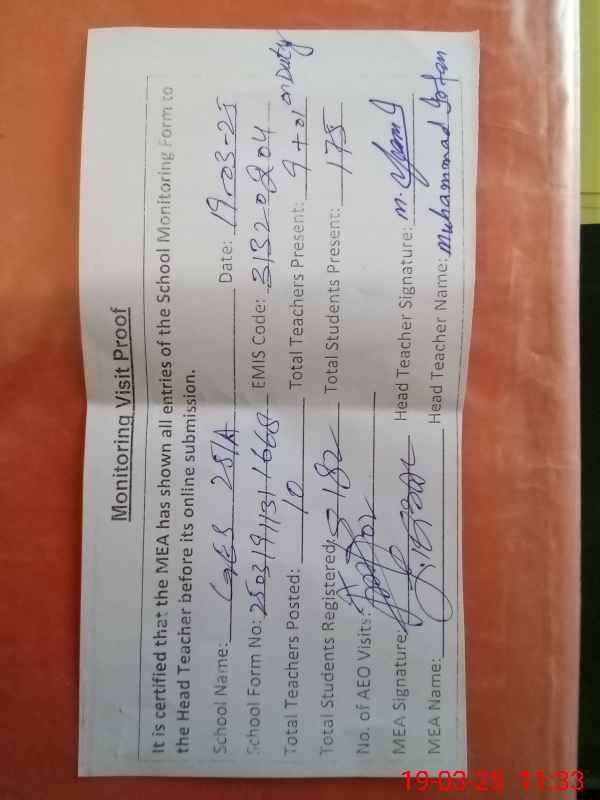 Monitoring Visit Proof
It is certified that the MEA has shown all entries of the School Monitoring Form to
the Head Teacher before its online submission.
School Name: GES 251A Date: 19-03-25
School Form No: EMIS Code: 31320204
Total Teachers Posted: 10 Total Teachers Present: 9+01 on Duty
Total Students Registered: 182 Total Students Present: 175
No. of AEO Visits:
MEA Signature: Head Teacher Signature:
MEA Name: Head Teacher Name: Muhammad Irfan
19-03-25 11:33